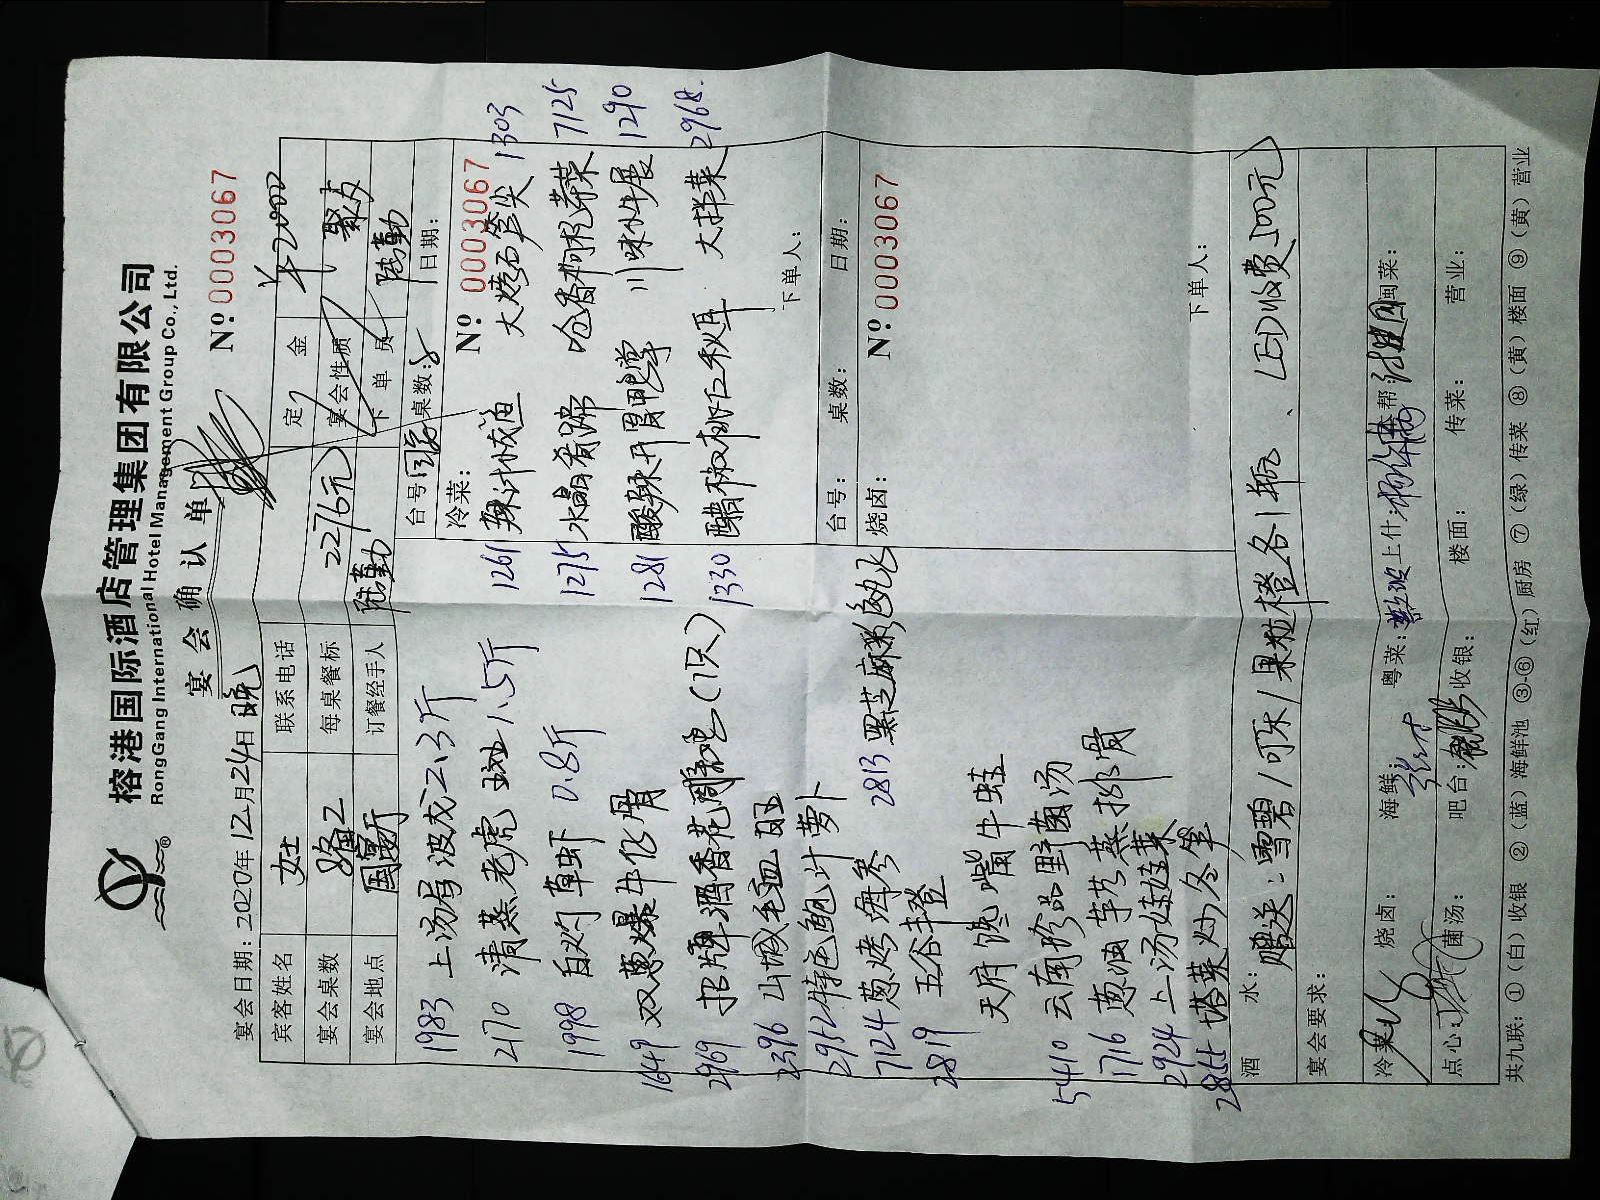 榕港国际酒店管理集团有限公司
RongGang International Hotel Management Group Co., Ltd.
宴会确认单
宴会日期：2020年12月24日晚
Nº 0003067
宾客姓名 女士 联系电话 定金 ¥2000
宴会桌数 每桌餐标 2276元 宴会性质 聚友
宴会地点 国宴厅 订餐经手人 陆勤 下单员 陆勤
台号： 桌数：8 日期：
冷菜： Nº 0003067
1983 上汤焗波龙2.3斤
2170 清蒸老虎斑1.5斤
1998 白灼草虾 0.8斤
1649 双葱爆牛仔骨
2969 招牌酒香花雕鸡(1只)
2396 山城毛血旺
2952 特色鲍汁萝卜
7124 葱烤海参
2813 黑芝麻彩
2819 五谷丰登
天府馋嘴牛蛙
5410 云南珍品野菌汤
1716 葱油芋艿蒸排骨
2924 上汤娃娃菜
2855 塔菜炒冬笋
1261 辣汁
大烤 笋尖 1303
1275 水晶肴蹄
7125
1281 酸辣开胃鸭掌
川味牛展 1290
1330 醋椒桃仁秋耳
大拌菜 2968
下单人：
台号： 桌数： 日期：
烧卤： Nº 0003067
下单人：
酒水： 赠送：雪碧/可乐/果粒橙各1瓶、LED收费500元)
宴会要求：
冷菜： 烧卤： 海鲜： 粤菜： 上什： 本帮： 闽菜：
点心： 菌汤： 吧台： 收银： 楼面： 传菜： 营业：
共九联：①（白）收银 ②（蓝）海鲜池 ③-⑥（红）厨房 ⑦（绿）传菜 ⑧（黄）楼面 ⑨（黄）营业